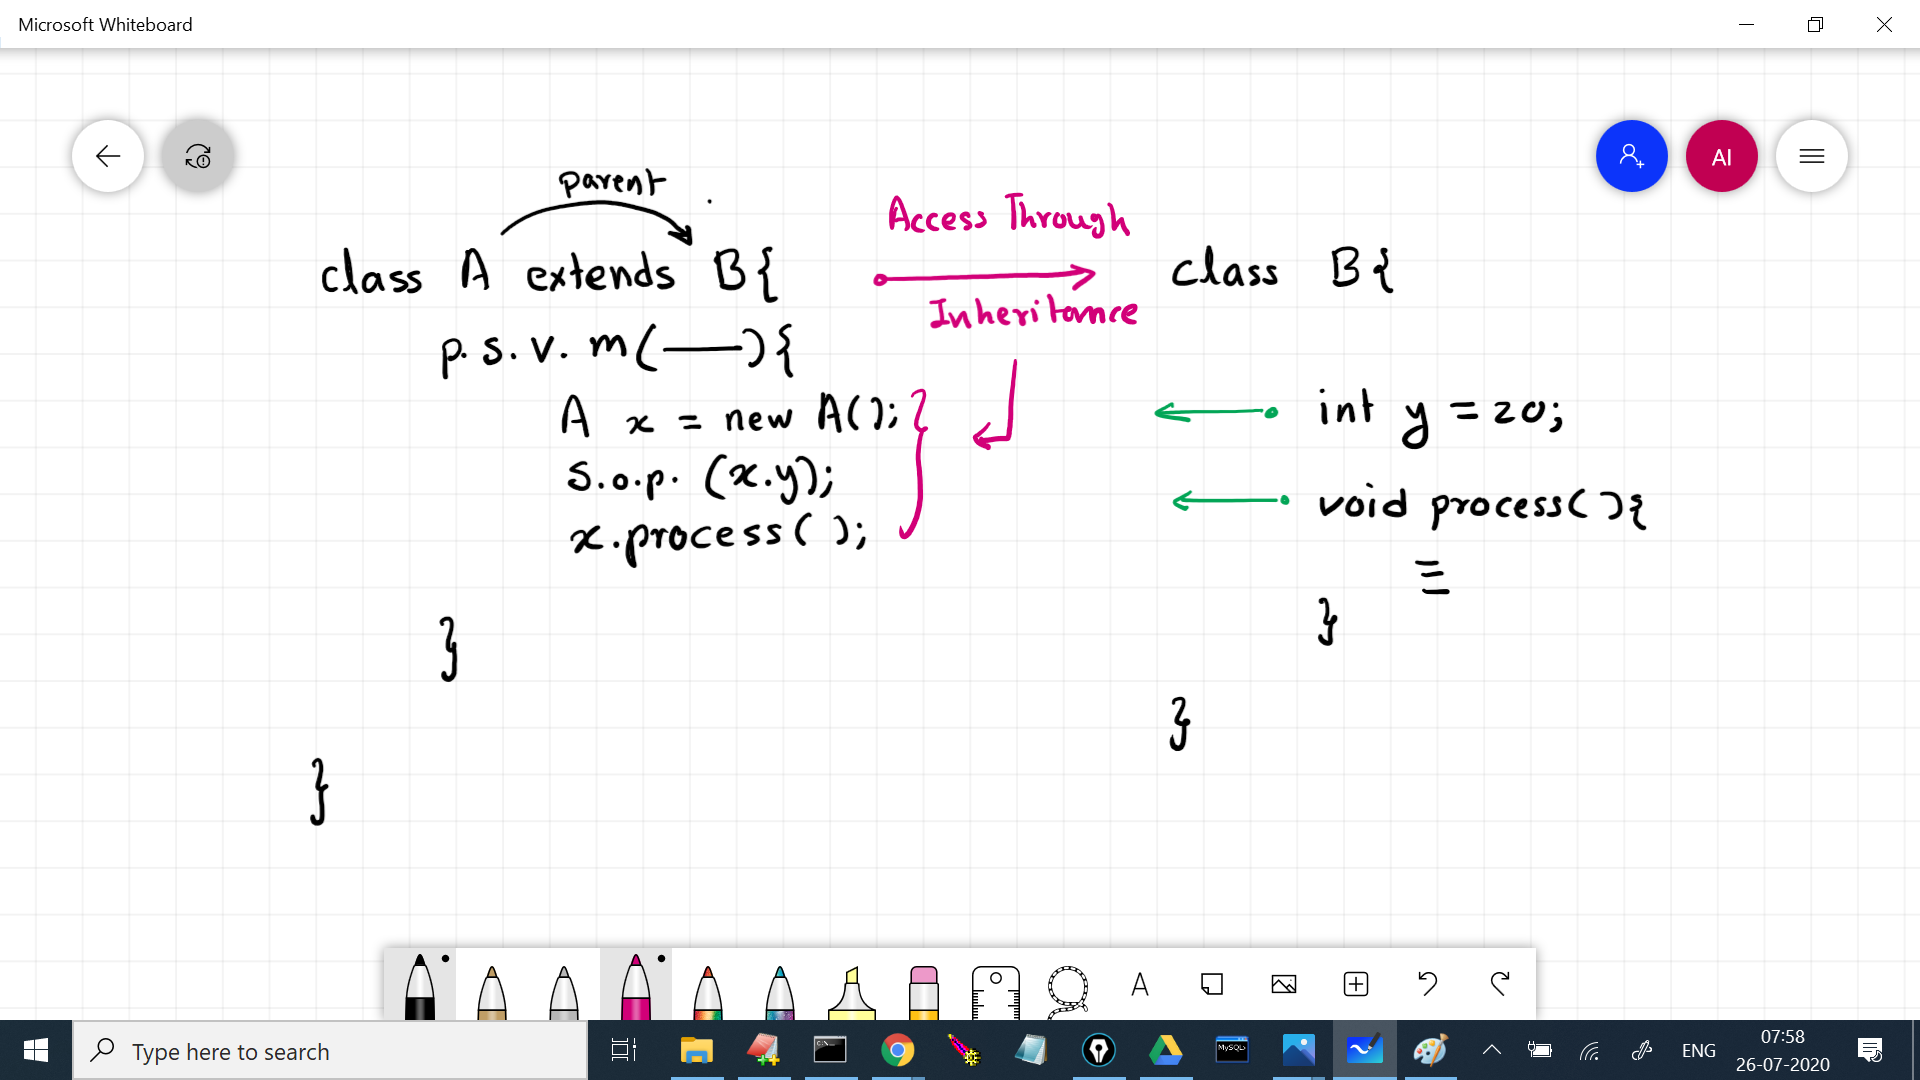 Microsoft Whiteboard
AI
parent
class A extends B{
p.s.v. m(——){
A x = new A();
s.o.p. (x.y);
x.process( );
}
}
Access Through
Inheritance
class B{
int y = 20;
void process( ){
}
}
A
Type here to search
C:\_
MySQL
ENG
07:58
26-07-2020